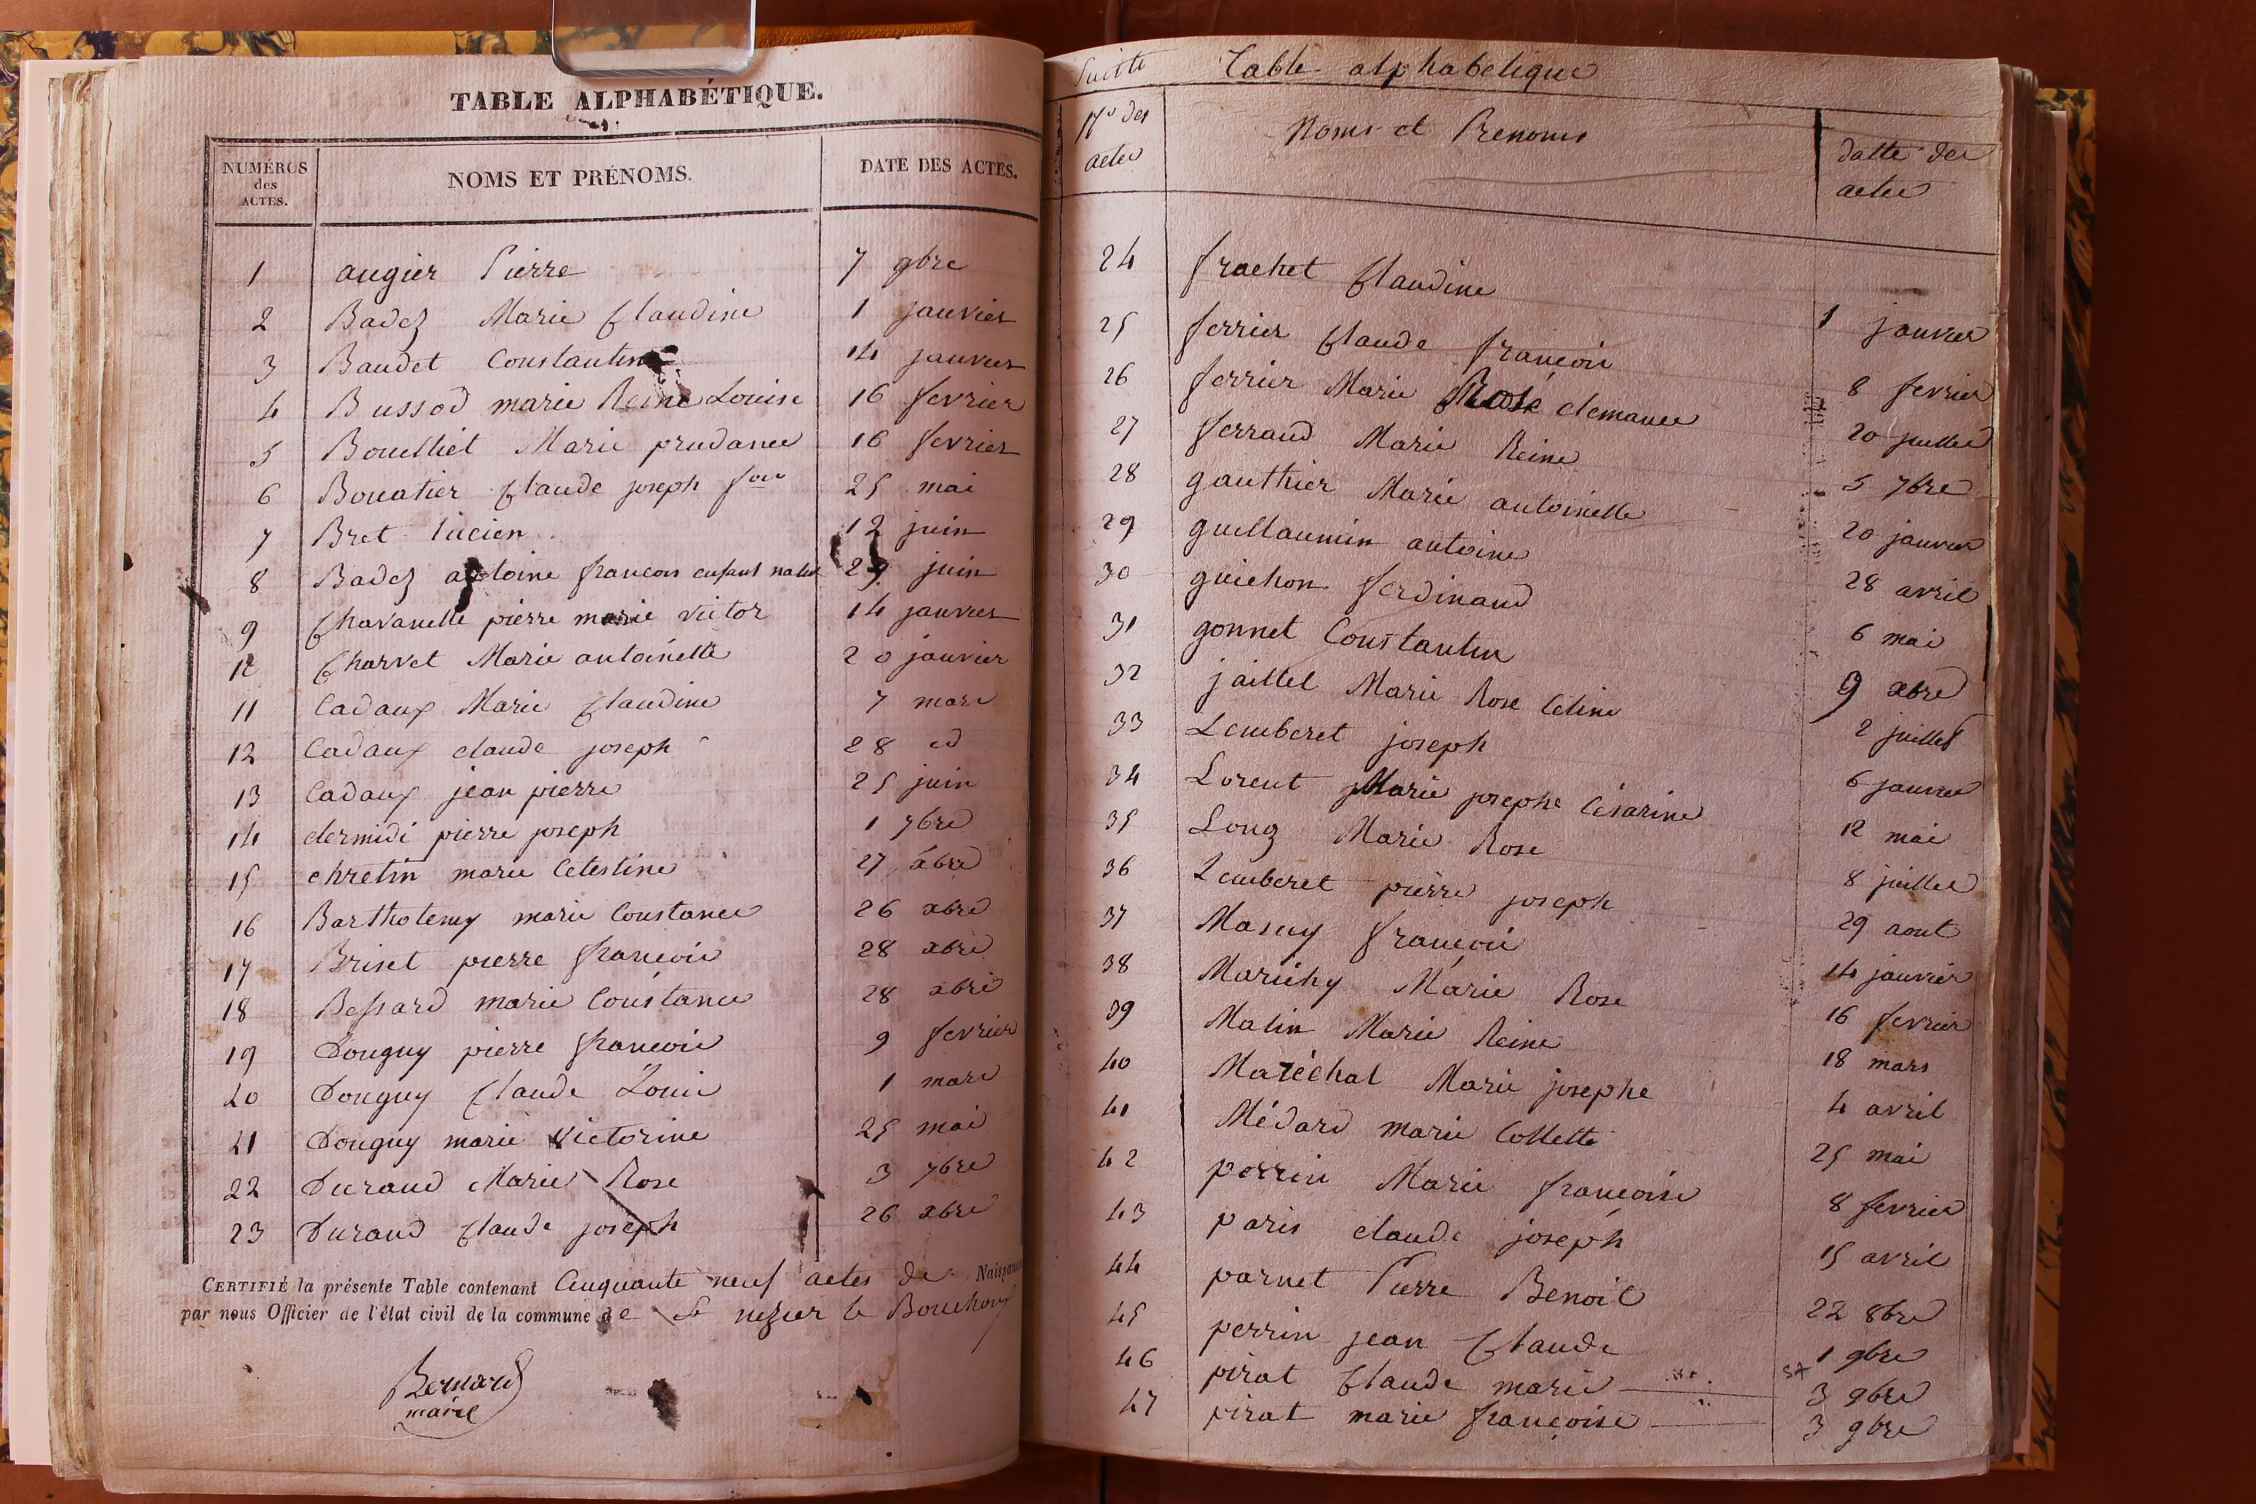 TABLE ALPHABÉTIQUE.
NUMÉROS des ACTES. NOMS ET PRÉNOMS. DATE DES ACTES.
1 augier Pierre 7 9bre
2 Badez Marie Claudine 1 janvier
3 Baudet Constantin 14 janvier
4 Bussod marie Reine Louise 16 fevrier
5 Bouilliet Marie prudance 16 fevrier
6 Bouatier Claude joseph 25 mai
7 Bret lucien 12 juin
8 Badez antoine francois enfant natel 29 juin
9 Chavanelle pierre marie victor 14 janvier
12 Charvet Marie antoinette 20 janvier
11 Cadaux Marie Claudine 7 mars
12 Cadaux claude joseph 28 id
13 Cadaux jean pierre 25 juin
14 clermidi pierre joseph 1 7bre
15 chretin marie Celestine 27 xbre
16 Bartholemy marie Constance 26 xbre
17 Briset pierre francois 28 xbre
18 Bessard marie Constance 28 xbre
19 Douguy pierre francois 9 fevrier
20 Douguy Claude Louis 1 mars
21 Douguy marie Victorine 25 mai
22 Durand Marie Rose 3 7bre
23 Durand Claude joseph 26 xbre
CERTIFIÉ la présente Table contenant Cinquante neuf actes de Naissance
par nous Officier de l'état civil de la commune de St nizier le Bouchoux
Bernard
maire
Suitte Table alphabetique
No des actes Noms et Prenoms datte des actes
24 frachet Claudine 1 janvier
25 ferrier Claude francois 8 fevrier
26 ferrier Marie Rose clemance 20 juillet
27 ferraud Marie Reine 5 7bre
28 gauthier Marie antoinette 20 janvier
29 guillaumin antoine 28 avril
30 guichon ferdinand 6 mai
31 gonnet Constantin 9 xbre
32 jaillet Marie Rose Celine 2 juillet
33 Lemberet joseph 6 janvier
34 Lorent Marie josephe Césarine 12 mai
35 Long Marie Rose 8 juillet
36 Lemberet pierre joseph 29 aout
37 Masuy francois 14 janvier
38 Marichy Marie Rose 16 fevrier
39 Malin Marie Reine 18 mars
40 Maréchal Marie josephe 4 avril
41 Médard marie Collette 25 mai
42 perrin Marie francoise 8 fevrier
43 paris claude joseph 15 avril
44 parnet Pierre Benoit 22 8bre
45 perrin jean Claude 1 9bre
46 pirat Claude marie 3 9bre
47 pirat marie françoise 3 9bre